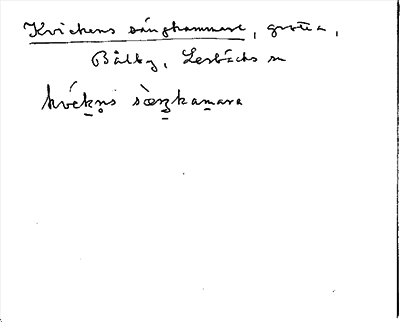 Kvickens sängkammare, grotta,
Bålby, Lerbäcks sn
kvék̠n̥s sæ̀ŋkam̠ara